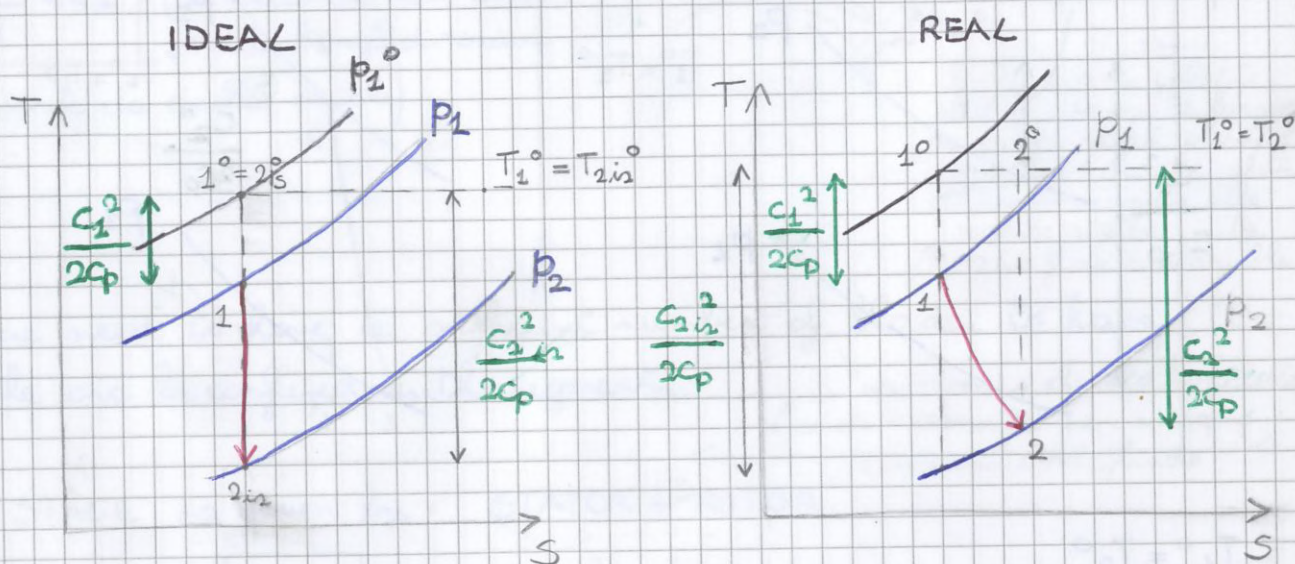 IDEAL
p₁°
T
p₁
1°=2°s
T₁° = T₂ᵢₛ°
C₁²
2Cp
p₂
1
C₂ᵢₛ²
2Cp
2ᵢₛ
S
REAL
T
1°
2°
p₁
T₁°=T₂°
C₁²
2Cp
1
C₂ᵢₛ²
2Cp
p₂
C₂²
2Cp
2
S